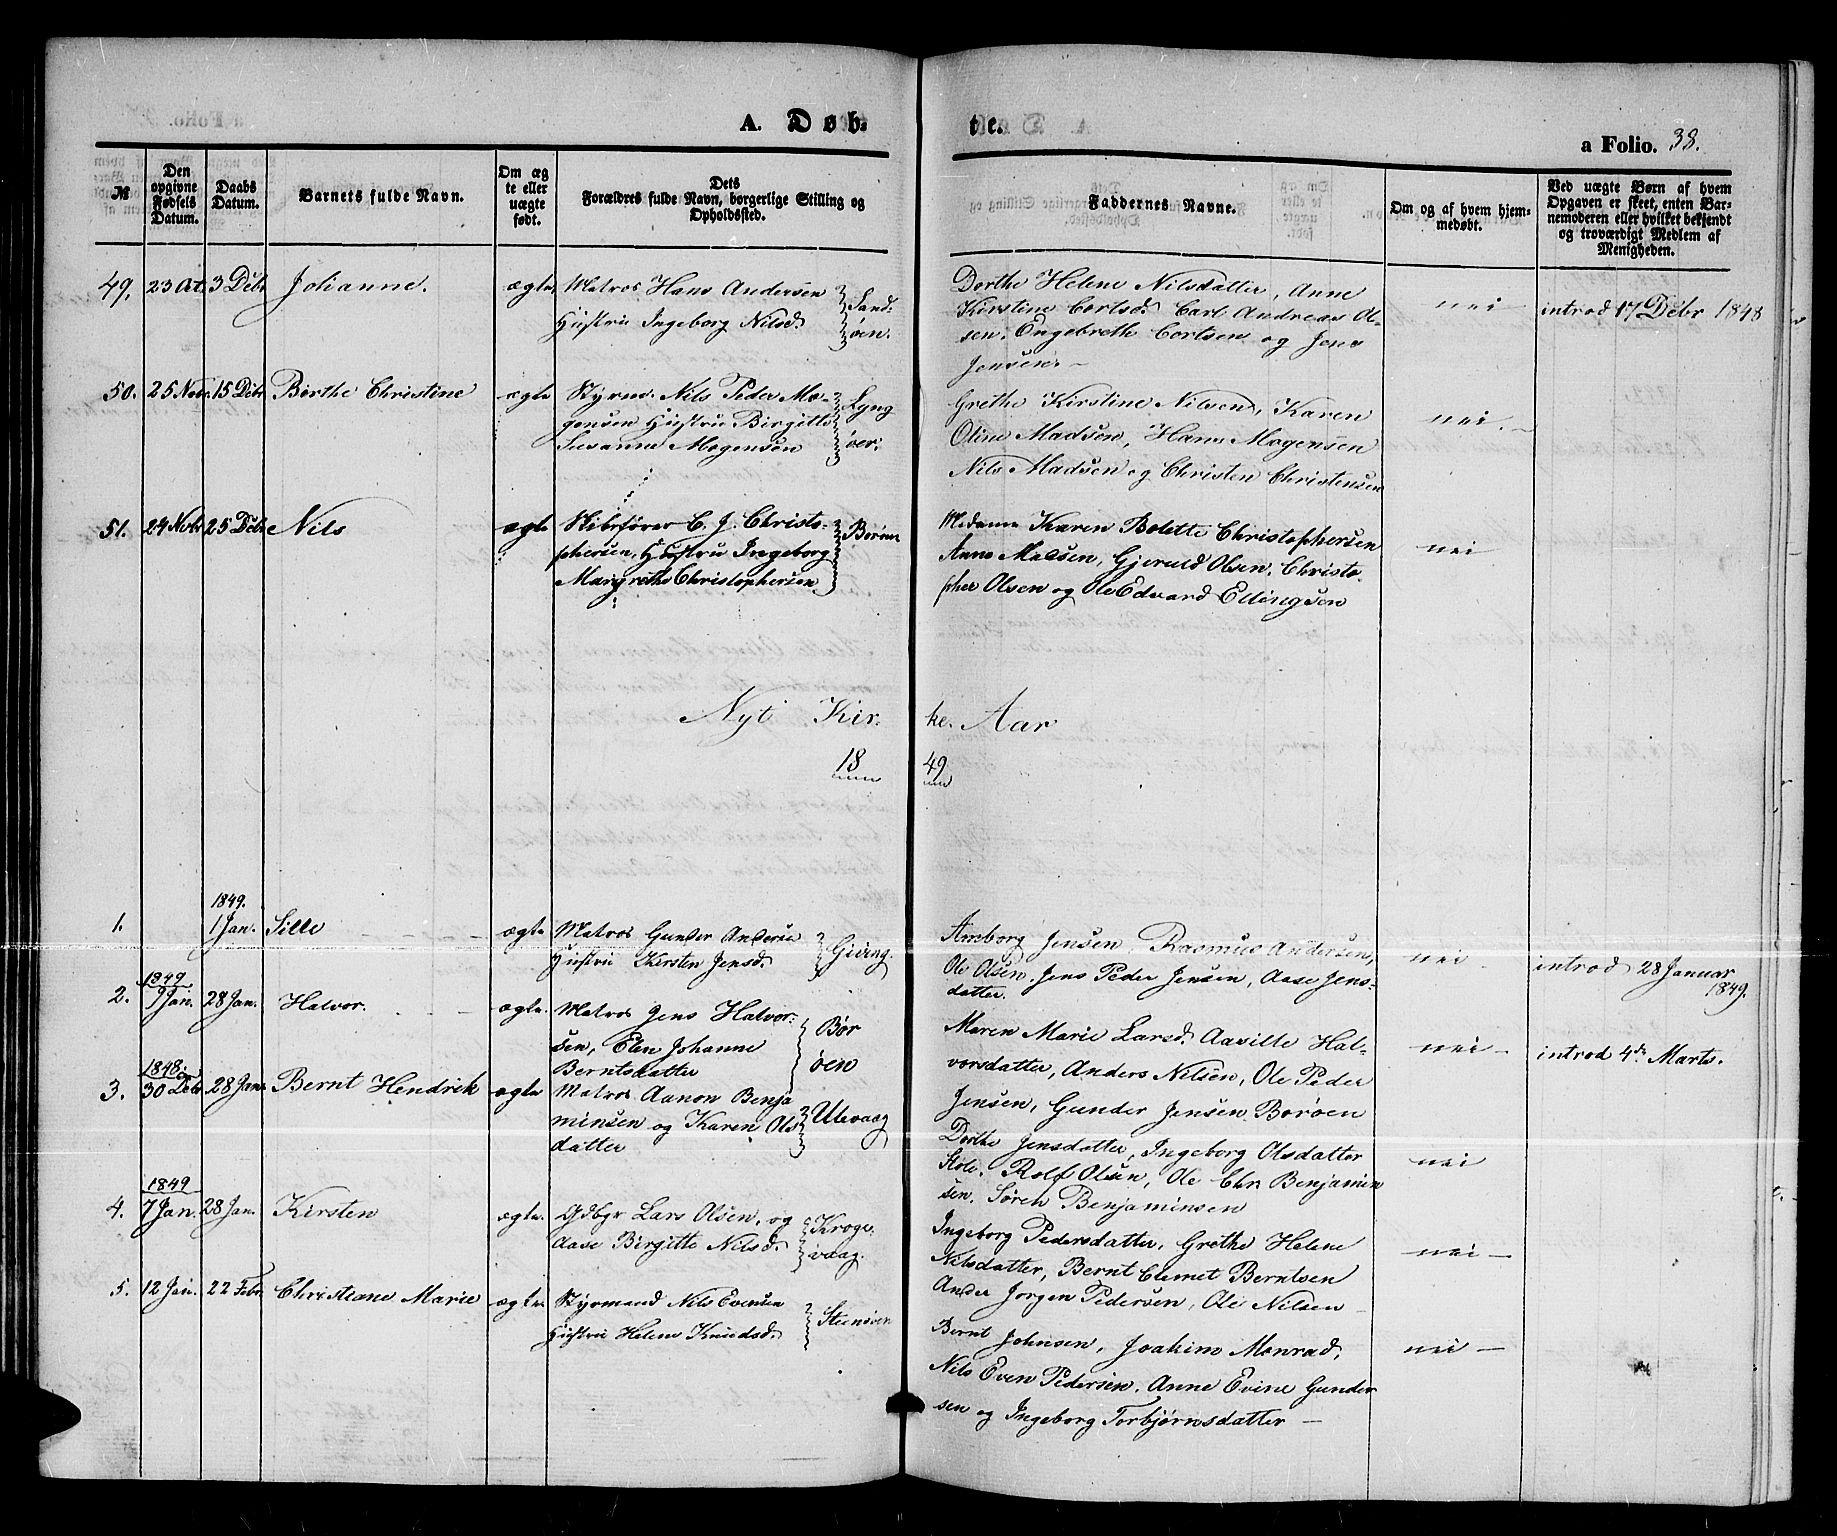 A. Døb-
te.
a Folio. 38.
№
Den opgivne Fødsels Datum.
Daabs Datum.
Barnets fulde Navn.
Om æg te eller uægte født.
Dets Forældres fulde Navn, borgerlige Stilling og Opholdssted.
Faddernes Navne.
Om og af hvem hjemmedøbt.
Ved uægte Børn af hvem Opgaven er skeet, enten Barnemoderen eller hvilket bekjendt og troværdigt Medlem af Menigheden.
49. 23 Oct. 3 Debr Johanne. ægte Matros Hans Andersen
Hustru Ingeborg Nilsd.
Sand-
øen.
Dorthe Helene Nilsdatter, Anne
Kirstine Cortsd. Carl Andreas Ol-
sen, Engebreth Cortsen og Jens
Jensen. –
nei
introd 17 Debr 1848
50. 25 Nov. 15 Debr Berthe Christine ægte Styrm. Nils Peder Mo-
gensen Hustru Birgitte
Susanne Mogensen
Lyng
öer.
Grethe Kirstine Nilsen, Karen
Oline Madsen, Hans Mogensen
Nils Madsen og Christen Christensen
nei. –
51. 24 Nvbr 25 Debr Nils ægte Skibsfører C. J. Christo-
phersen, Hustru Ingeborg
Margrethe Christophersen
Borøen
Madame Karen Bolette Christophersen
Anne Madsen, Gjeruld Olsen, Christo-
pher Olsen og Ole Edvard Ellingsen
nei
Nyt Kir-
ke Aar
18
49
1. 1849. 1 Jan. Sille ægte Matros Gunder Anders
Hustru Kirsten Jensd.
Gieving.
Amborg Jensen Rasmus Andersen,
Ole Olsen, Jens Peder Jensen, Aase Jens-
datter.
nei
introd 28 Januar
1849.
2. 1849 9 Jan. 28 Jan. Halvor. ægte. Matros Jens Halvor-
sen, Elen Johanne
Berntsdatter
Bor
øen
Maren Marie Larsd. Aaville Hal-
vorsdatter, Anders Nilsen, Ole Peder
Jensen, Gunder Jensen Borøen
nei –
introd 4de Marts.
3. 1848. 30 Debr 28 Jan. Bernt Hendrik ægte Matros Aanon Benja
minsen og Karen Ols
datter
Ulevaag
Dorthe Jensdatter, Ingeborg Olsdatter
Støle. Rolf Olsen, Ole Chr. Benjamin
sen. Søren Benjaminsen
nei
4. 1849 7 Jan. 28 Jan. Kirsten ægte. Gdbgr Lars Olsen, og
Aase Birgitte Nilsd.
Kroge-
vaag.
Ingeborg Pedersdatter, Grethe Helene
Nilsdatter, Bernt Clemet Berntsen
Ander Jorgen Pedersen, Ole Nilsen
nei –
5. 12 Jan. 22 Febr. Christiane Marie ægte. Styrmand Nils Evensen
Hustru Helene Knudsd.
Steensøen
Bernt Johnsen, Joakim Monrad,
Nils Even Pedersen, Anne Evine Gunder
sen og Ingeborg Torbjørnsdatter –
nei –